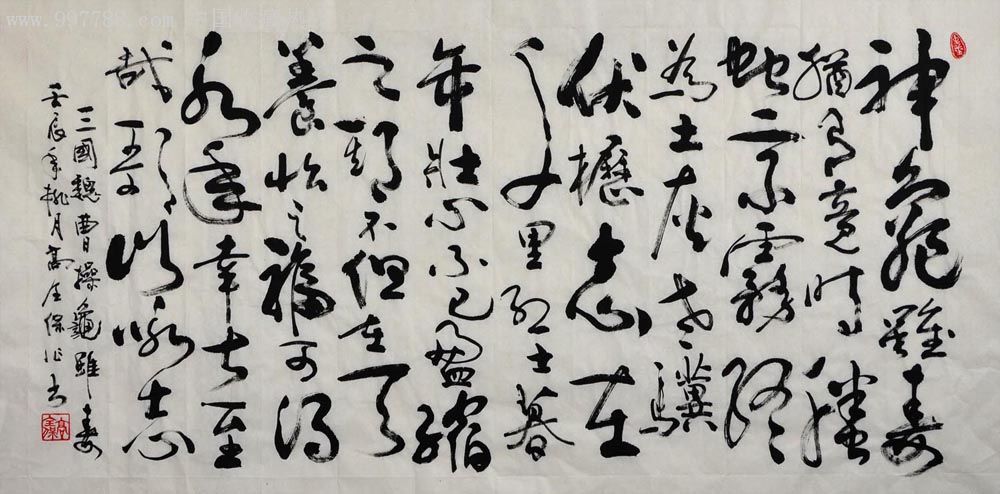 www.997788.com 中国收藏热线
神龜雖壽
猶有竟時騰
蛇乘霧終
為土灰老驥
伏櫪志在
千里烈士暮
年壯心不已盈縮
之期不但在天
養怡之福可得
永年幸甚至
哉歌以詠志
三國魏曹操龜雖壽
壬辰年桃月高保書